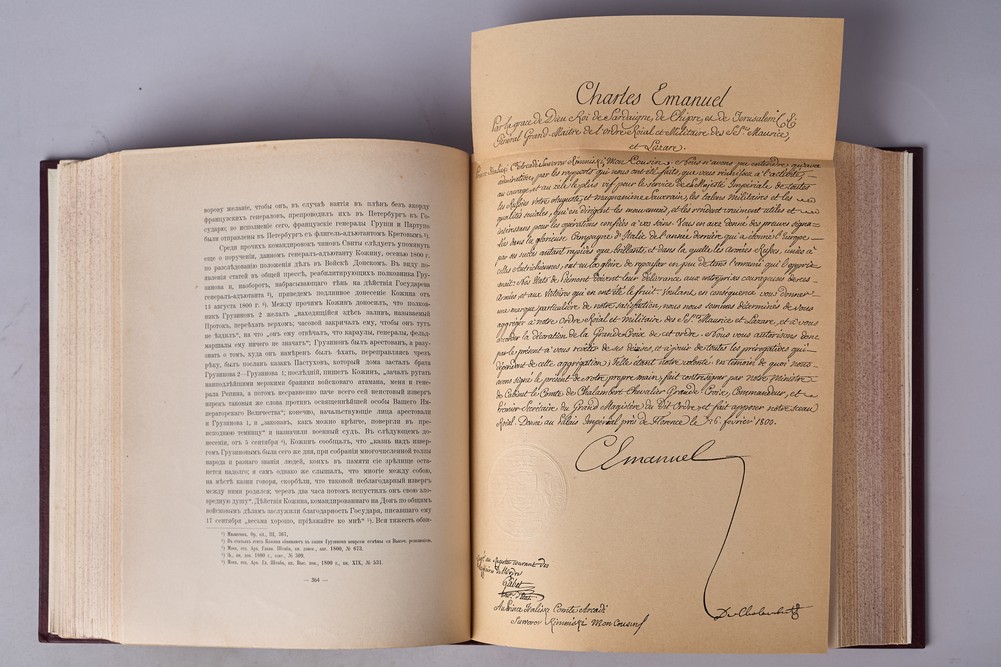 ворону желаніе, чтобы онъ, въ случаѣ взятія въ плѣнъ безъ аккорду
французскихъ генераловъ, препроводилъ ихъ въ Петербургъ къ Го-
сударю; во исполненіе сего, французскіе генералы Груши и Партуно
были отправлены въ Петербургъ съ флигель-адъютантомъ Кретовымъ ¹).
Среди прочихъ командировокъ чиновъ Свиты слѣдуетъ упомянуть
еще о порученіи, данномъ генералъ-адъютанту Кожину, осенью 1800 г.
по разслѣдованію положенія дѣлъ въ Войскѣ Донскомъ. Въ виду по-
явленія статей въ общей прессѣ, реабилитирующихъ полковника Гру-
зинова и, наоборотъ, набрасывающаго тѣнь на дѣйствія Государева
генералъ-адъютанта ²), приведемъ подлинное донесеніе Кожина отъ
13 августа 1800 г. ³). Между прочимъ Кожинъ доносилъ, что полков-
никъ Грузиновъ 2 желалъ „находящійся здѣсь заливъ, называемый
Протокъ, переѣхать верхомъ; часовой закричалъ ему, чтобы онъ тутъ
не ѣздилъ“, на что „онъ ему отвѣчалъ, что караулы, генералы, фельд-
маршалы ему ничего не значатъ“; Грузиновъ былъ арестованъ, а разу-
знать о томъ, куда онъ намѣренъ былъ ѣхать, переправляясь чрезъ
рѣку, былъ посланъ казакъ Пастуховъ, который дома засталъ брата
Грузинова 2—Грузинова 1; послѣдній, пишетъ Кожинъ, „зачалъ ругать
наиподлѣйшими мерзкими бранями войсковаго атамана, меня и генерала
Репина, а потомъ несравненно паче всего сей неистовый извергъ
изрекъ таковыя же слова противъ освященнѣйшей особы Вашего Им-
ператорскаго Величества“; конечно, начальствующіе лица арестовали
и Грузинова 1, и „заковавъ, какъ можно крѣпче, повергли въ пре-
исподнюю темницу“ и назначили военный судъ. Въ слѣдующемъ до-
несеніи, отъ 5 сентября ⁴), Кожинъ сообщалъ, что „казнь надъ извер-
гомъ Грузиновымъ была сего же дня, при собраніи многочисленной толпы
народа и разнаго званія людей, коихъ въ памяти сіе зрѣлище оста-
нется надолго; я самъ однако же слышалъ, что многіе между собою,
на мѣстѣ казни говоря, скорбѣли, что таковой неблагодарный извергъ
между ними родился; чрезъ два часа потомъ испустилъ онъ свою зло-
вредную душу“. Дѣйствія Кожина, командированнаго на Донъ по общимъ
войсковымъ дѣламъ заслужили благодарность Государя, писавшаго ему
17 сентября „весьма хорошо, пріѣзжайте ко мнѣ“ ⁵). Вся тяжесть обви-
— 364 —
Charles Emanuel
Par la grace de Dieu Roi de Sardaigne, de Chipre, et de Jerusalem &. &.
Général Grand-Maitre de l'Ordre Roial et Militaire des Sts. Maurice,
et Lazare.
Prince Italiski Comte Arcadi Suworow Rimniski, Mon Cousin. Nous n'avons pu entendre qu'avec
admiration par les rapports qui nous ont été faits, que vous réunissez à l'activité,
au courage, et au zele le plus vif pour le service de Sa Majesté Impériale de toutes
les Russies votre Auguste, et magnanime Souverain, les talens Militaires et les
qualités sociales, qui en dirigent les mouvemens, et les rendent vraiment utiles et
intéressans pour les opérations confiées à vos soins. Vous en avez donné des preuves signa-
lées dans la glorieuse Campagne d'Italie de l'année dernière, qui a étonné l'Europe
par ses succès autant rapides que brillants, et dans la quelle les Armées Russes, unies à
celles Autrichiennes, ont eu la gloire, de repousser en peu de tems l'ennemi qui l'opprimait.
mait: Nos Etats de Piémont doivent leur délivrance aux entreprises courageuses de ces
Armées et aux Victoires qui en ont été le fruit. Voulant en conséquence vous donner
une marque particulière, de notre satisfaction, nous nous sommes déterminés de vous
aggreger à notre Ordre Roial et Militaire des Sts. Maurice et Lazare, et à vous
accorder la décoration de la Grande Croix de cet ordre. Nous vous autorisons donc
par le présent à vous revêtir de ses désseins, et à jouir de toutes les prérogatives qui
dépendent de cette aggrégation; Telle étant notre volonté en temoin de quoi nous
avons signé le présent de notre propre main, fait contresigner par notre Ministre
de Cabinet le Comte de Chalambert Chevalier Grande Croix, Commandeur, et
premier Secrétaire du Grand Magistère du dit Ordre et fait apposer notre sceau
Roial. Donné au Palais Impérial près de Florence le 16. février 1800.
CEmanuel
De Chalambert
Au Prince Italiski Comte Arcadi
Suworow Rimniski Mon Cousin